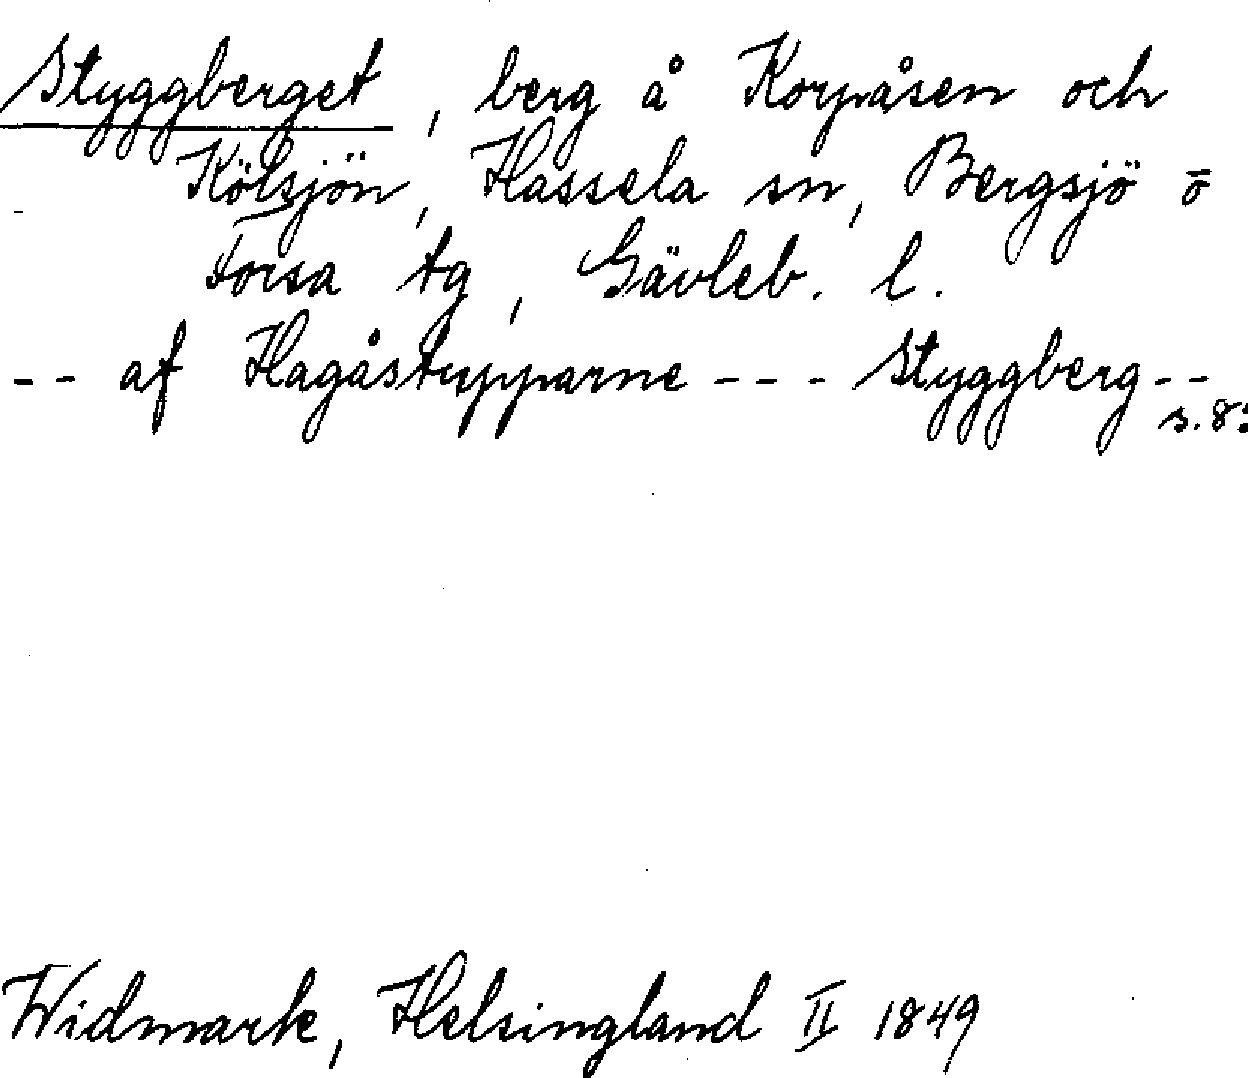 Styggberget, berg å Korpåsen och
Kölsjön, Hassela sn, Bergsjö o
Forsa tg, Gävleb. l.
-- af Hagåstupparne --- Styggberg--
s. 8:
Widmark, Helsingland II 1849